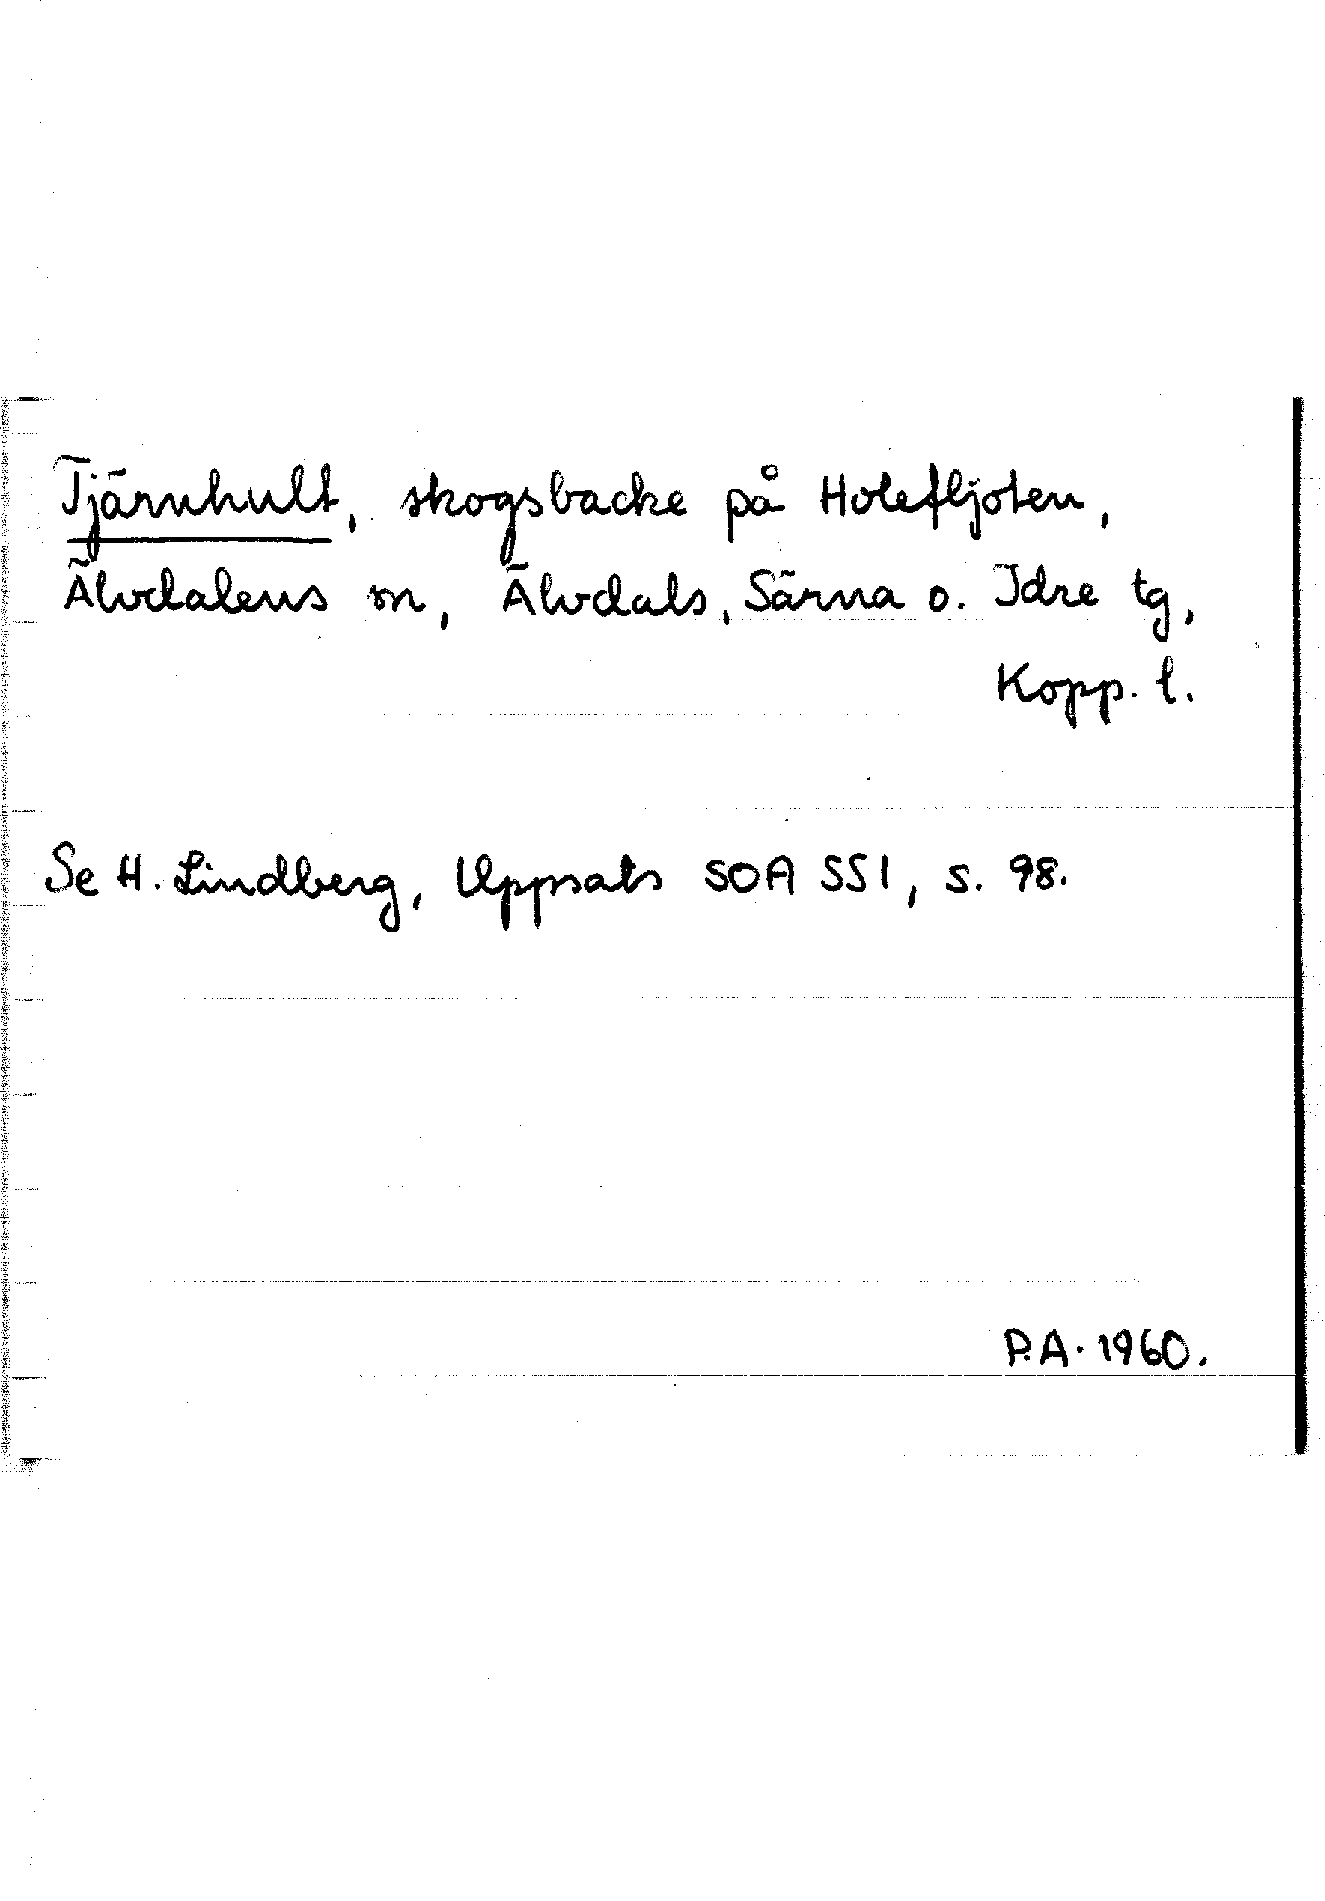 Tjärnhult, skogsbacke på Holefljoten,
Älvdalens sn, Älvdals, Särna o. Idre tg,
Kopp. l.
Se H. Lindberg, Uppsats SOA SS 1, s. 98.
P.A. 1960.